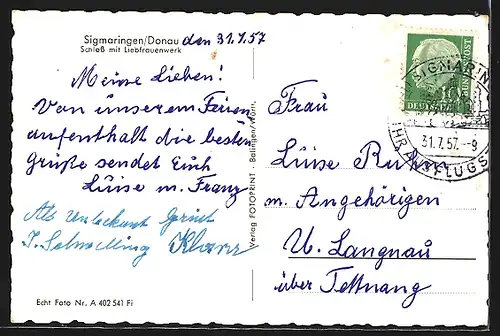 Sigmaringen/Donau den 31.7.57
Schloß mit Liebfrauenwerk
Meine Lieben!
Von unserem Ferien
aufenthalt die besten
Grüße sendet Euch
Luise m. Franz
Als unbekannt grüsst
Echt Foto Nr. A 402 541 Fi
Verlag FOTOPRINT - Balingen/Württ.
DEUTSCHE BUNDESPOST
10
SIGMARINGEN
31.7.57.-9
IHR AUSFLUGS
Frau
Luise
m. Angehörigen
U. Langnau
über Tettnang